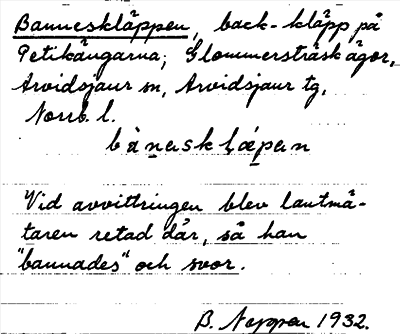 Banneskläppen, back-kläpp på
Petikängarna; Glommersträsk ägor,
Arvidsjaur sn, Arvidsjaur tg,
Norrb. l.
bànaskḷǽpan
Vid avvittringen blev lantmä-
taren retad där, så han
"bannades" och svor.
B. Neppen 1932.